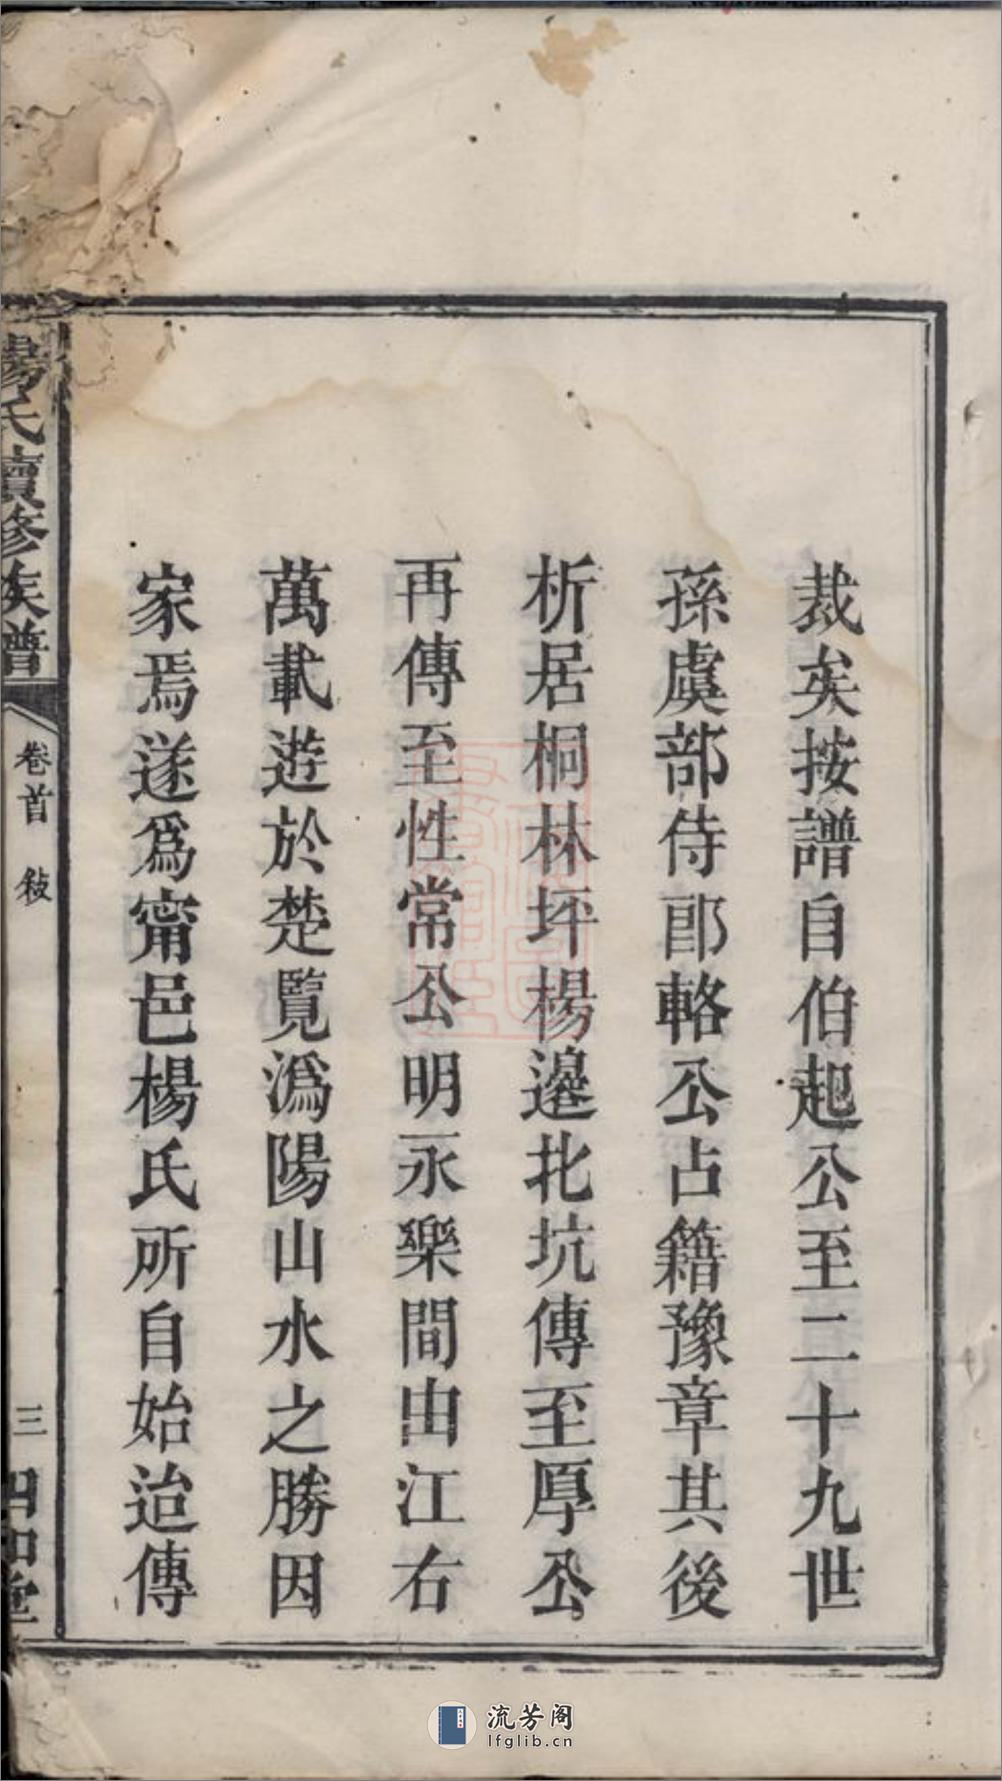 裁矣按譜自伯起公至二十九世
孫虞部侍郎輅公占籍豫章其後
析居桐林坪楊邊北坑傳至厚公
再傳至性常公明永樂間由江右
萬載遊於楚覽溈陽山水之勝因
家焉遂爲甯邑楊氏所自始迨傳
楊氏續修族譜
卷首 敍
三
四知堂
流芳阁
lfglib.cn